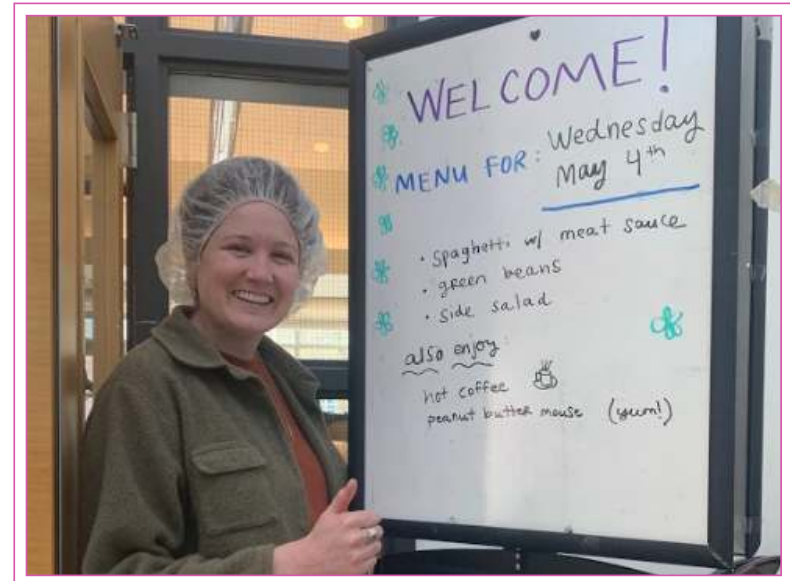 WELCOME!
MENU FOR: Wednesday
May 4th
• spaghetti w/ meat sauce
• green beans
• side salad
also enjoy:
hot coffee
peanut butter mouse (yum!)